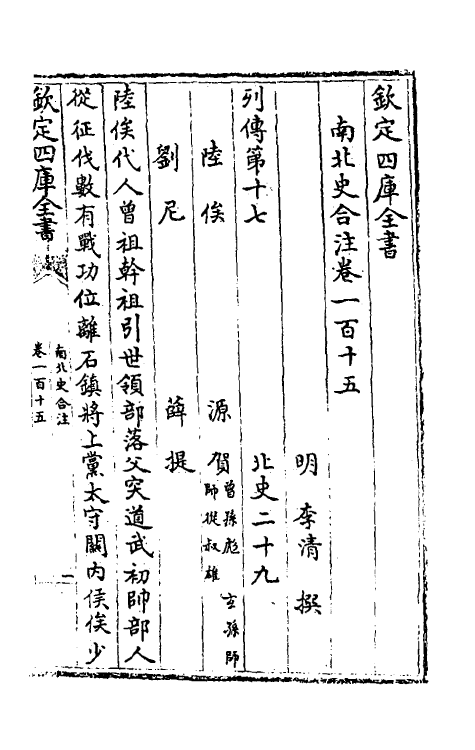 欽定四庫全書
南北史合注卷一百十五
明 李清 撰
列傳第十七 北史二十九
陸俟 源賀 曾孫彪 玄孫師 師從叔雄
劉尼 薛提
陸俟代人曾祖幹祖引世領部落父突道武初帥部人
從征伐數有戰功位離石鎮將上黨太守關内侯俟少
欽定四庫全書
南北史合注
卷一百十五
一